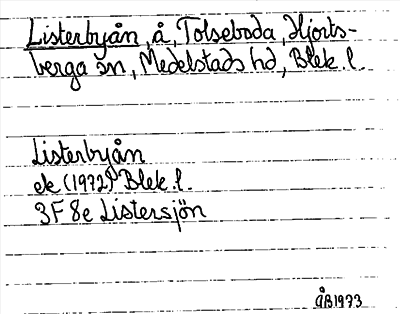 Listerbyån, å, Tolseboda, Hjorts-
berga sn, Medelstads hd, Blek. l.
Listerbyån
ek (1972) Blek. l.
3F 8e Listersjön
ÅB1973